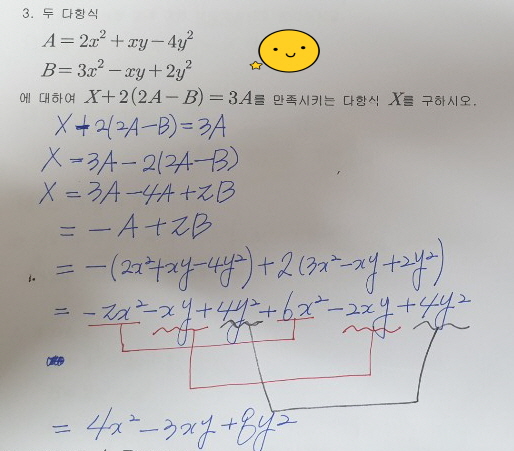 3. 두 다항식
A=2x²+xy-4y²
B=3x²-xy+2y²
에 대하여 X+2(2A-B)=3A를 만족시키는 다항식 X를 구하시오.
X+2(2A-B)=3A
X=3A-2(2A-B)
X=3A-4A+2B
=-A+2B
=-(2x²+xy-4y²)+2(3x²-xy+2y²)
=-2x²-xy+4y²+6x²-2xy+4y²
=4x²-3xy+8y²